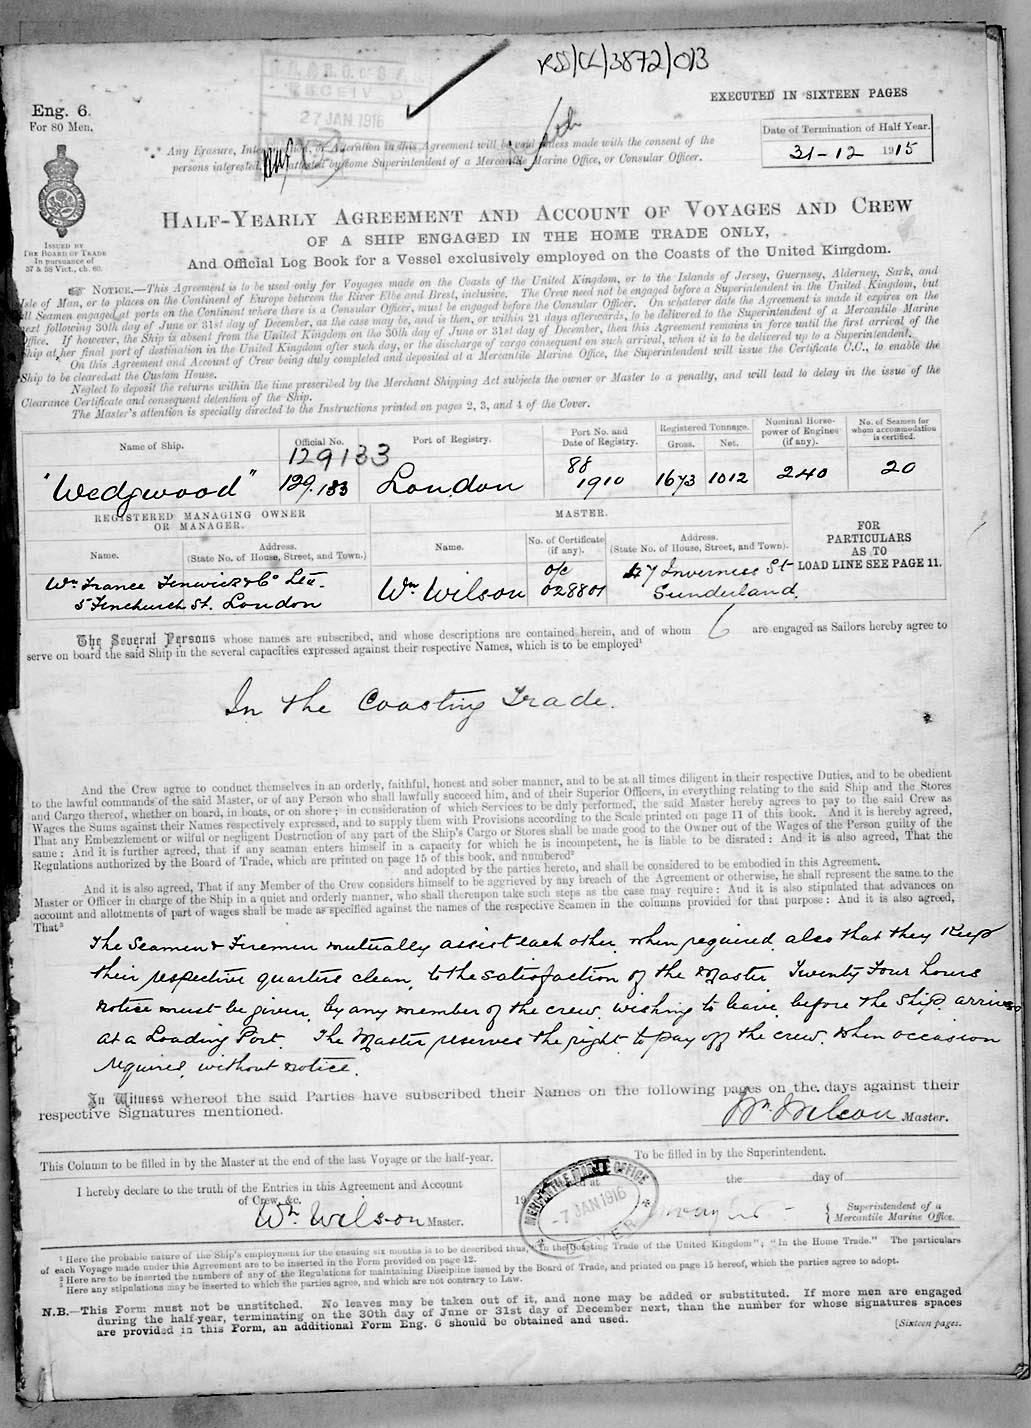 RSS/CL/3872/013
EXECUTED IN SIXTEEN PAGES
Eng. 6.
For 80 Men.
27 JAN 1916
Date of Termination of Half Year.
31-12 1915
Any Erasure, Interlineation, or Alteration in this Agreement will be void unless made with the consent of the
persons interested, attested by some Superintendent of a Mercantile Marine Office, or Consular Officer.
HALF-YEARLY AGREEMENT AND ACCOUNT OF VOYAGES AND CREW
OF A SHIP ENGAGED IN THE HOME TRADE ONLY,
And Official Log Book for a Vessel exclusively employed on the Coasts of the United Kingdom.
ISSUED BY
THE BOARD OF TRADE
In pursuance of
57 & 58 Vict., ch. 60.
NOTICE.—This Agreement is to be used only for Voyages made on the Coasts of the United Kingdom, or to the Islands of Jersey, Guernsey, Alderney, Sark, and
Isle of Man, or to places on the Continent of Europe between the River Elbe and Brest, inclusive. The Crew need not be engaged before a Superintendent in the United Kingdom, but
all Seamen engaged at ports on the Continent where there is a Consular Officer, must be engaged before the Consular Officer. On whatever date the Agreement is made it expires on the
next following 30th day of June or 31st day of December, as the case may be, and is then, or within 21 days afterwards, to be delivered to the Superintendent of a Mercantile Marine
Office. If however, the Ship is absent from the United Kingdom on the 30th day of June or 31st day of December, then this Agreement remains in force until the first arrival of the
Ship at her final port of destination in the United Kingdom after such day, or the discharge of cargo consequent on such arrival, when it is to be delivered up to a Superintendent.
On this Agreement and Account of Crew being duly completed and deposited at a Mercantile Marine Office, the Superintendent will issue the Certificate C.C., to enable the
Ship to be cleared at the Custom House.
Neglect to deposit the returns within the time prescribed by the Merchant Shipping Act subjects the owner or Master to a penalty, and will lead to delay in the issue of the
Clearance Certificate and consequent detention of the Ship.
The Master's attention is specially directed to the Instructions printed on pages 2, 3, and 4 of the Cover.
Name of Ship. Official No. Port of Registry. Port No. and Date of Registry. Registered Tonnage. Gross. Net. Nominal Horse-power of Engines (if any). No. of Seamen for whom accommodation is certified.
129133
"Wedgwood" 129.133 London 88 1910 1673 1012 240 20
REGISTERED MANAGING OWNER
OR MANAGER.
MASTER.
Name. Address. (State No. of House, Street, and Town.) Name. No. of Certificate (if any). Address. (State No. of House, Street, and Town).
FOR
PARTICULARS
AS TO
LOAD LINE SEE PAGE 11.
Wm France Fenwick & Co Ltd
5 Fenchurch St. London
Wm Wilson
o/c
028801
47 Inverness St
Sunderland.
The Several Persons whose names are subscribed, and whose descriptions are contained herein, and of whom 6 are engaged as Sailors hereby agree to
serve on board the said Ship in the several capacities expressed against their respective Names, which is to be employed¹
In the Coasting Trade.
And the Crew agree to conduct themselves in an orderly, faithful, honest and sober manner, and to be at all times diligent in their respective Duties, and to be obedient
to the lawful commands of the said Master, or of any Person who shall lawfully succeed him, and of their Superior Officers, in everything relating to the said Ship and the Stores
and Cargo thereof, whether on board, in boats, or on shore; in consideration of which Services to be duly performed, the said Master hereby agrees to pay to the said Crew as
Wages the Sums against their Names respectively expressed, and to supply them with Provisions according to the Scale printed on page 11 of this book. And it is hereby agreed,
That any Embezzlement or wilful or negligent Destruction of any part of the Ship's Cargo or Stores shall be made good to the Owner out of the Wages of the Person guilty of the
same: And it is further agreed, that if any seaman enters himself in a capacity for which he is incompetent, he is liable to be disrated: And it is also agreed, That the
Regulations authorized by the Board of Trade, which are printed on page 15 of this book, and numbered²
and adopted by the parties hereto, and shall be considered to be embodied in this Agreement.
And it is also agreed, That if any Member of the Crew considers himself to be aggrieved by any breach of the Agreement or otherwise, he shall represent the same to the
Master or Officer in charge of the Ship in a quiet and orderly manner, who shall thereupon take such steps as the case may require: And it is also stipulated that advances on
account and allotments of part of wages shall be made as specified against the names of the respective Seamen in the columns provided for that purpose: And it is also agreed,
That³
The Seamen & Firemen mutually assist each other, when required, also that they Keep
their respective quarters clean, to the satisfaction of the Master. Twenty Four hours
notice must be given, by any member of the crew, wishing to leave, before the Ship, arrives
at a Loading Port. The Master reserves the right to pay off the crew, when occasion
requires, without notice.
In Witness whereof the said Parties have subscribed their Names on the following pages on the days against their
respective Signatures mentioned.
Wm Wilson Master.
This Column to be filled in by the Master at the end of the last Voyage or the half-year.
To be filled in by the Superintendent.
I hereby declare to the truth of the Entries in this Agreement and Account
of Crew, &c.
Wm Wilson Master.
the day of
19
MERCANTILE MARINE OFFICE
-7 JAN 1916
Superintendent of a
Mercantile Marine Office.
¹ Here the probable nature of the Ship's employment for the ensuing six months is to be described thus, "In the Coasting Trade of the United Kingdom"; "In the Home Trade." The particulars
of each Voyage made under this Agreement are to be inserted in the Form provided on page 12.
² Here are to be inserted the numbers of any of the Regulations for maintaining Discipline issued by the Board of Trade, and printed on page 15 hereof, which the parties agree to adopt.
³ Here any stipulations may be inserted to which the parties agree, and which are not contrary to Law.
N.B.—This Form must not be unstitched. No leaves may be taken out of it, and none may be added or substituted. If more men are engaged
during the half-year, terminating on the 30th day of June or 31st day of December next, than the number for whose signatures spaces
are provided in this Form, an additional Form Eng. 6 should be obtained and used.
[Sixteen pages.